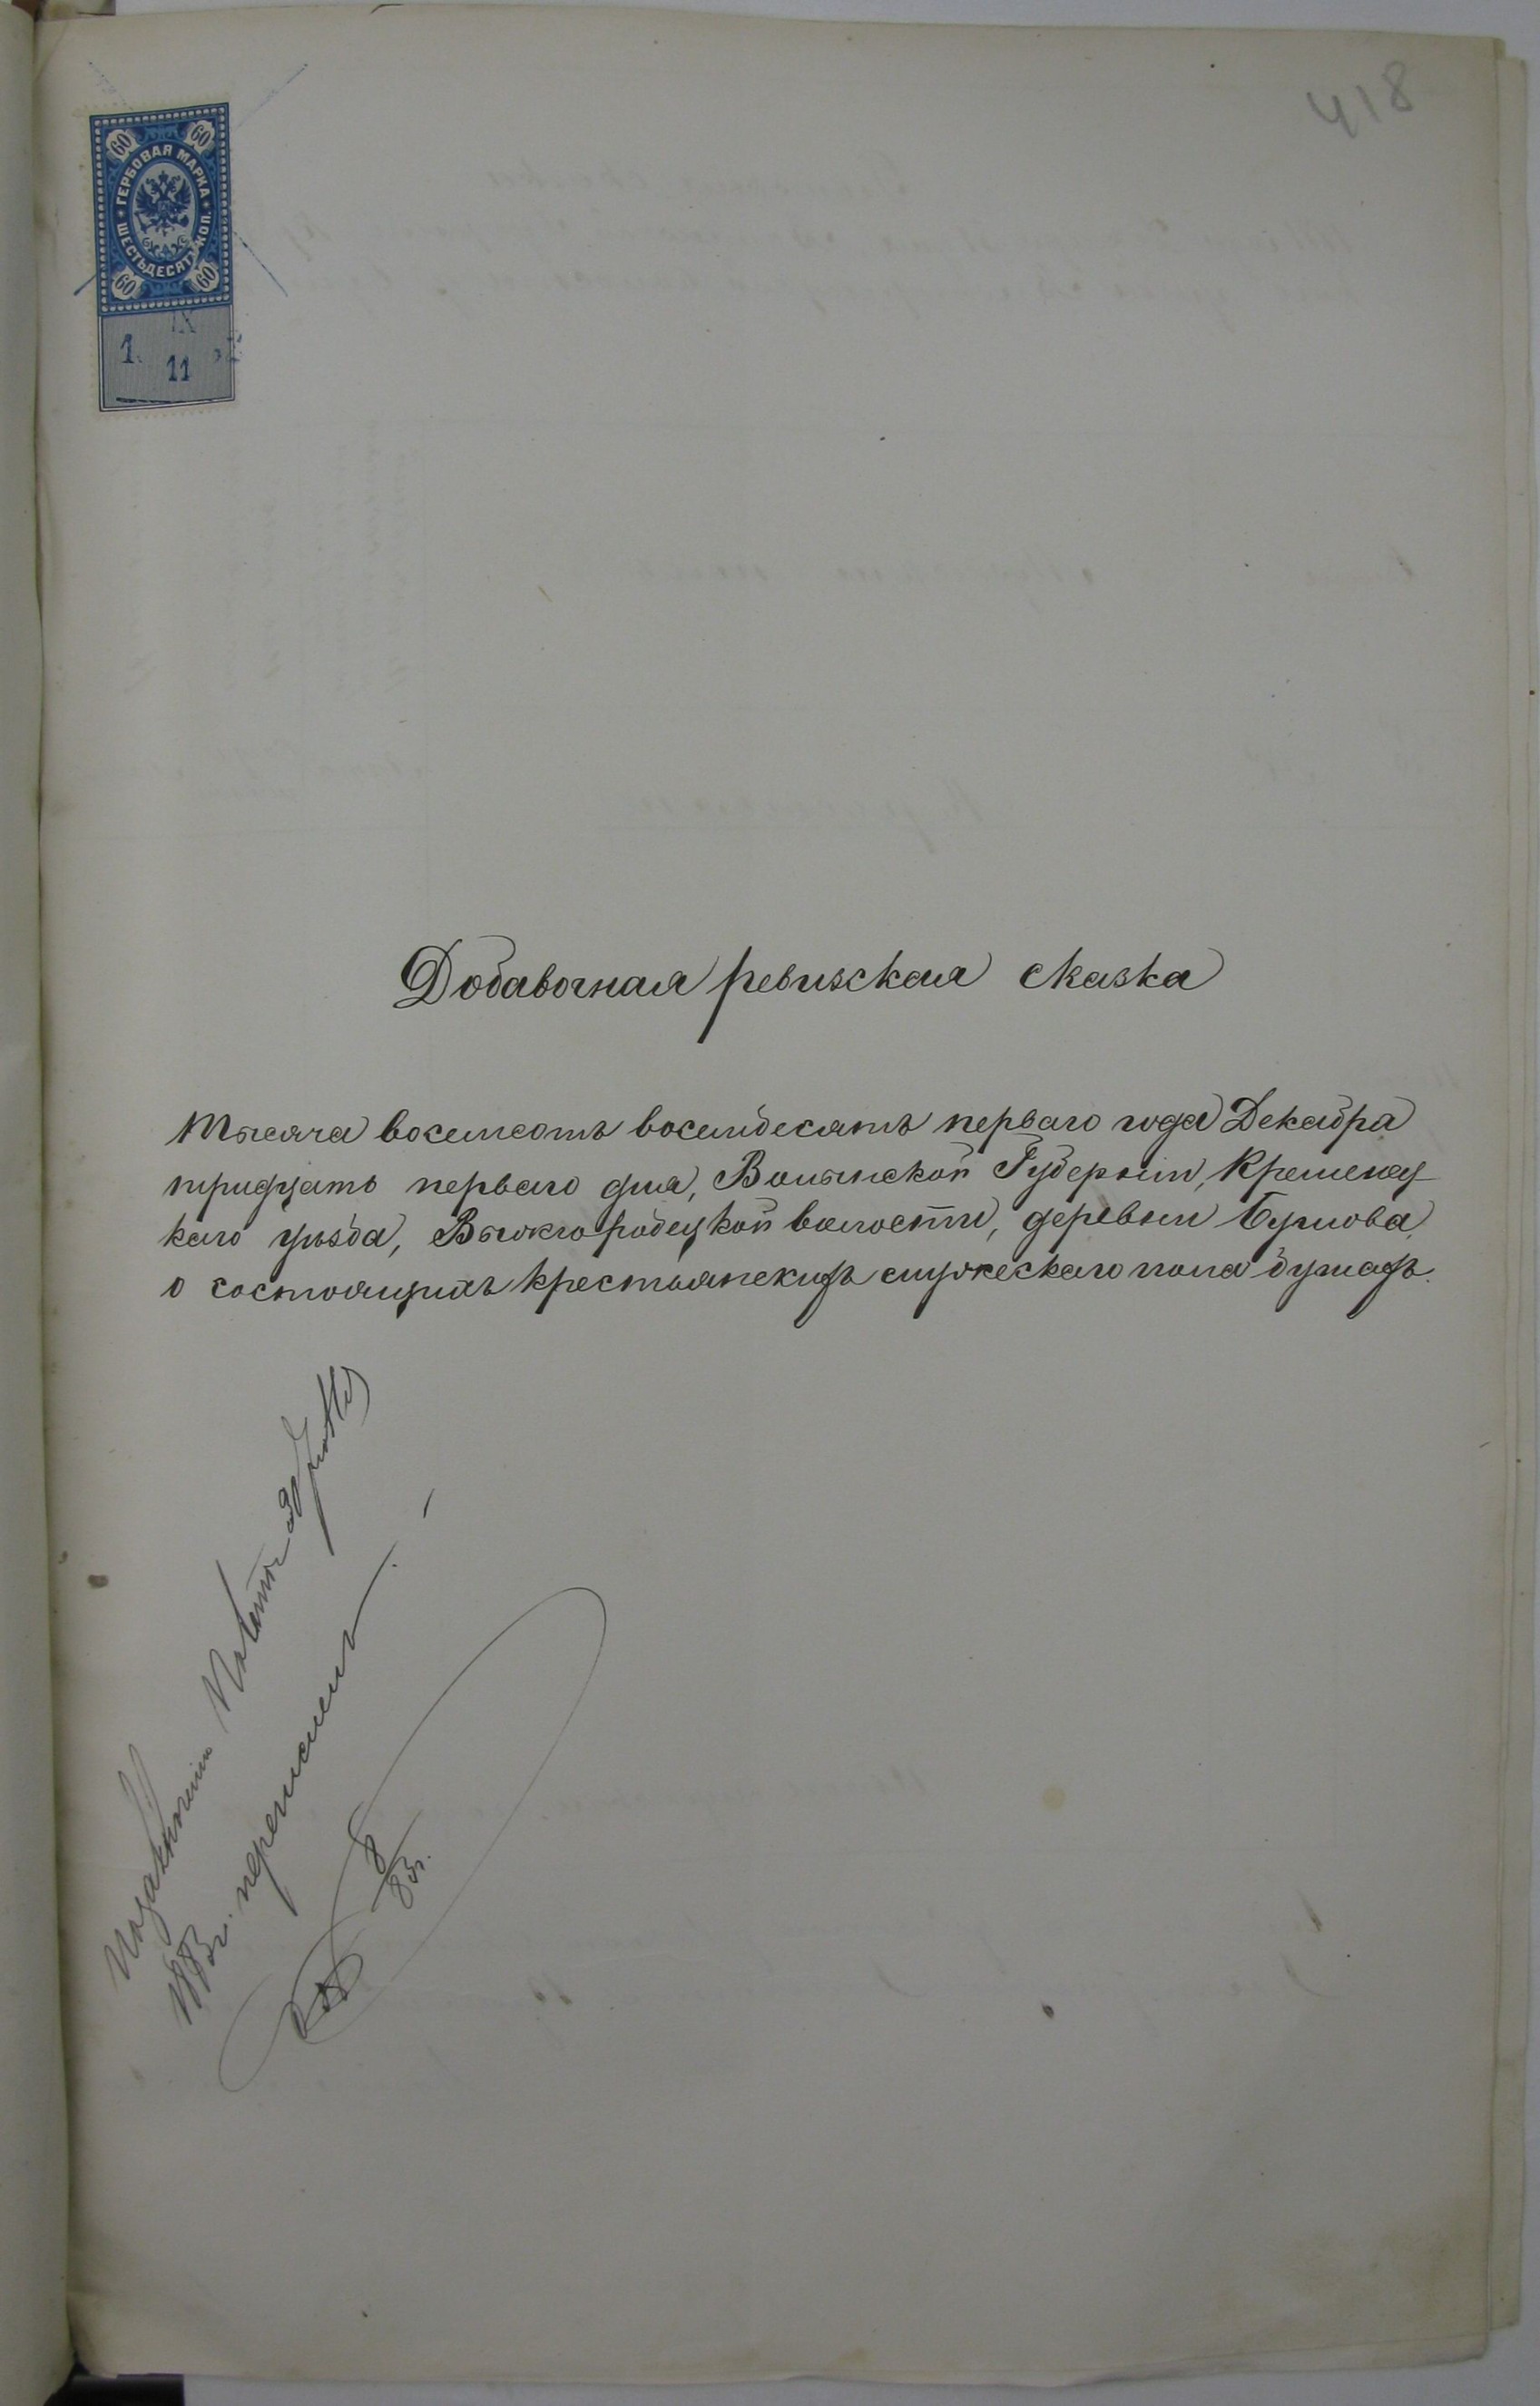 418
60 60
ГЕРБОВАЯ МАРКА
ШЕСТЬДЕСЯТЪ КОП.
60 60
IX
1. 11
Добавочная ревизская сказка
Тысяча восемсотъ восемдесятъ перваго года Декабря
тридцать перваго дня, Волынской Губерніи, Кременец
каго уѣзда, Вышгородецкой волости, деревни Буглова,
о состоящихъ крестьянскихъ мужескаго пола душахъ.
1883г. перечислен
8
83г.